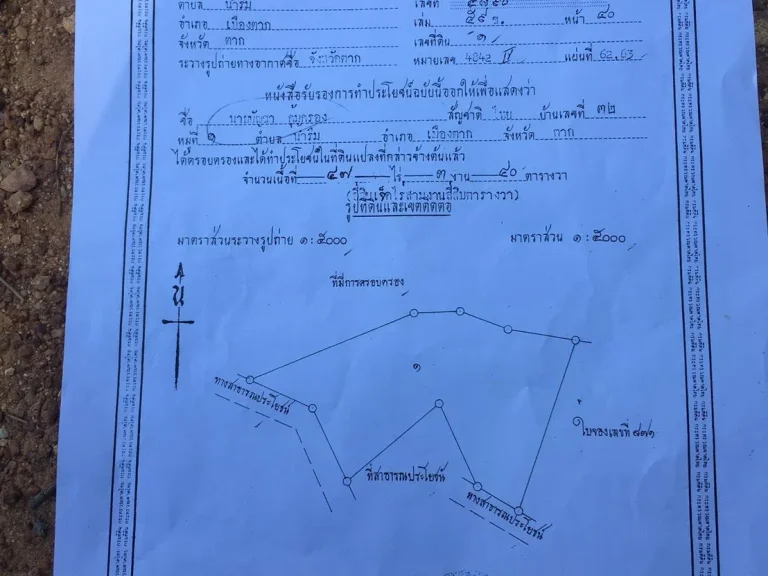 ตำบล น้ำรึม เลขที่
อำเภอ เมืองตาก เล่ม ๕๙ หน้า ๔๐
จังหวัด ตาก เลขที่ดิน ๑
ระวางรูปถ่ายทางอากาศชื่อ จังหวัดตาก หมายเลข 4842 II แผ่นที่ 62,63
หนังสือรับรองการทำประโยชน์ฉบับนี้ออกให้เพื่อแสดงว่า
ชื่อ สัญชาติ ไทย บ้านเลขที่ ๓๒
หมู่ที่ ๑ ตำบล น้ำรึม อำเภอ เมืองตาก จังหวัด ตาก
ได้ครอบครองและได้ทำประโยชน์ในที่ดินแปลงที่กล่าวข้างต้นแล้ว
จำนวนเนื้อที่ ๔๗ ไร่ ๓ งาน ๔๐ ตารางวา
(สี่สิบเจ็ดไร่สามงานสี่สิบตารางวา)
รูปที่ดินและเขตติดต่อ
มาตราส่วนระวางรูปถ่าย ๑:๕๐๐๐ มาตราส่วน ๑:๕๐๐๐
น
ที่มีการครอบครอง
๑
ทางสาธารณประโยชน์
ใบจองเลขที่ ๘๗๑
ที่สาธารณประโยชน์
ทางสาธารณประโยชน์